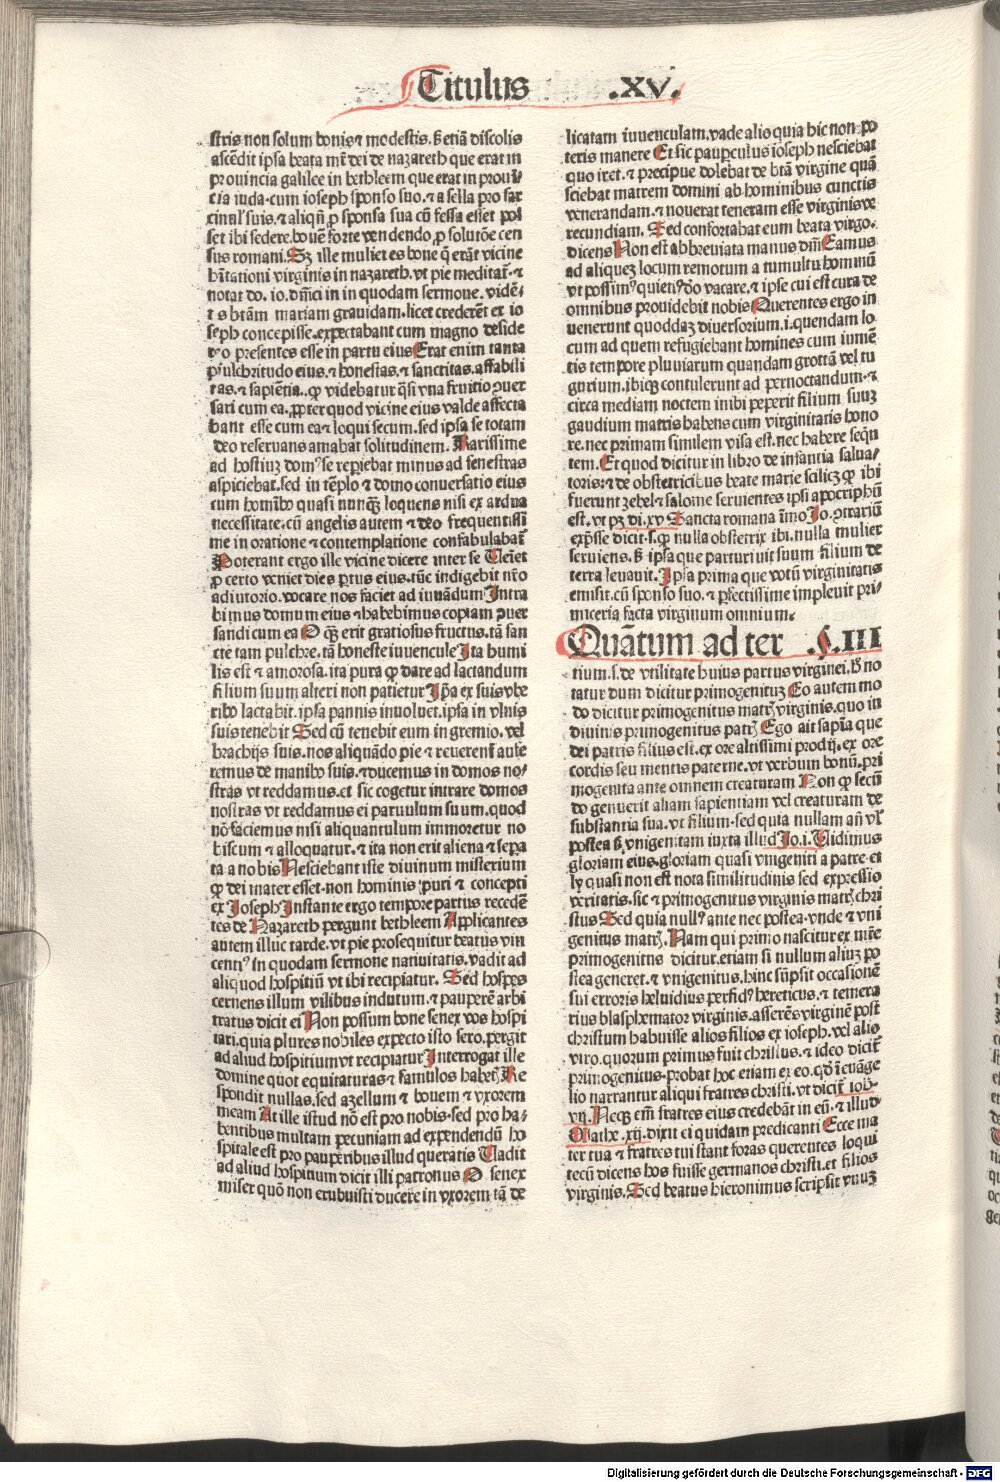 Titulus .XV.
stris non solum bonis ⁊ modestis. sꝫ etiā discolis
ascēdit ipsa beata mr̄ dei de nazareth que erat in
prouincia galilee in bethleem que erat in prouī
cia iuda. cum ioseph sponso suo. ⁊ a sella pro sar
cinul' suis. ⁊ aliqn̄ ꝓ sponsa sua cū fessa esset pos
set ibi sedere. bouē forte vendendo ꝓ solutōe cen
sus romani. Sꝫ ille mulieres bone q̄ erāt vicine
hītationi virginis in nazareth. vt pie meditat̄ ⁊
notat do. io. dn̄ici in in quodam sermone. vidēt
t s btām mariam grauidam. licet crederēt ex io
seph concepisse. expectabant cum magno deside
rio presentes esse in partu eius Erat enim tanta
pulchritudo eius. ⁊ honestas. ⁊ sanctitas. affabili
tas. ⁊ sapiētia. ꝙ videbatur q̄si vna fruitio ꝯuer
sari cum ea. ꝓpter quod vicine eius valde affecta
bant esse cum ea ⁊ loqui secum. sed ipsa se totam
deo reseruans amabat solitudinem. Rarissime
ad hostiuꝫ domꝰ se repiebat minus ad fenestras
aspiciebat. sed in tēplo ⁊ domo conuersatio eius
cum homībꝰ quasi nunq̄ꝫ loquens nisi ex ardua
necessitate. cū angelis autem ⁊ deo frequentissi
me in oratione ⁊ contemplatione confabulabat̄
Poterant ergo ille vicine dicere inter se Ueniet
ꝓ certo veniet dies ꝑtus eius. tūc indigebit nr̄o
adiutorio. vocare nos faciet ad iuuādum Intra
bimus domum eius ⁊ habebimus copiam ꝯuer
sandi cum ea O q̄ꝫ erit gratiosus fructus. tā san
cte tam pulchre. tā honeste iuuencule Ita humi
lis est ⁊ amorosa. ita pura ꝙ dare ad lactandum
filium suum alteri non patietur Ip̄a ex suis vbe
ribꝰ lactabit. ipsa pannis inuoluet. ipsa in vlnis
suis tenebit Sed cū tenebit eum in gremio. vel
brachijs suis. nos aliquādo pie ⁊ reuerent̄ aufe
remus de manibꝰ suis. ⁊ ducemus in domos no/
stras vt reddamus. et sic cogetur intrare domos
nostras vt reddamus ei paruulum suum. quod
nō faciemus nisi aliquantulum immoretur no
biscum ⁊ alloquatur. ⁊ ita non erit aliena ⁊ sepa
ta a nobis Nesciebant iste diuinum misterium
ꝙ dei mater esset. non hominis puri ⁊ concepti
ex Joseph Instante ergo tempore partus recedē
tes de Nazareth pergunt bethleem Applicantes
autem illuc tarde. vt pie prosequitur beatus vin
centiꝰ in quodam sermone natiuitatis. vadit ad
aliquod hospitiū vt ibi recipiatur. Sed hospes
cernens illum vilibus indutum. ⁊ pauperē arbi
tratus dicit ei Non possum bone senex vos hospi
tari. quia plures nobiles expecto isto sero. pergit
ad aliud hospitium vt recipiatur Interrogat ille
domine quot equitaturas ⁊ famulos habet̄ Re
spondit nullas. sed azellum ⁊ bouem ⁊ vxorem
meam At ille istud nō est pro nobis. sed pro ha/
bentibus multam pecuniam ad expendendū ho
spitale est pro pauperibus illud queratis Uadit
ad aliud hospitium dicit illi patronus O senex
miser quō non erubuisti ducere in vxorem tā de
licatam iuuenculam. vade alis quia hic non po
teris manere Et sic pauꝑculus ioseph nesciebat
quo iret. ⁊ precipue dolebat de btā virgine quā
sciebat matrem domini ab hominibus cunctis
venerandam. ⁊ nouerat teneram esse virginis ve
recundiam. Sed confortabat eum beata virgo.
dicens Non est abbreuiata manus dn̄i Eamus
ad aliqueꝫ locum remotum a tumultu hominū
vt possimꝰ quieti ꝰdōo vacare. ⁊ ipse cui est cura de
omnibus prouidebit nobis Querentes ergo in
uenerunt quoddaꝫ diuersorium. i. quendam lo
cum ad quem refugiebant homines cum iumē
tis tempore pluuiarum quandam grottā vel tu
gurium. ibiqꝫ contulerunt ad pernoctandum. ⁊
circa mediam noctem inibi peperit filium suuꝫ
gaudium matris habens cum virginitatis hono
re. nec primam similem visa est. nec habere seqn̄
tem. Et quod dicitur in libro de infantia salua/
toris. ⁊ de obstetricibus beate marie scilicꝫ ꝙ ibi
fuerunt zebel ⁊ salome seruientes ipsi apocriphū
est. vt pꝫ di. xv Sancta romana īmo Jo. ꝯtrariū
exp̄sse dicit. s. ꝙ nulla obstetrix ibi. nulla mulier
seruiens. sꝫ ipsa que parturiuit suum filium de
terra leuauit. Ipsa prima que votū virginitatis
emisit. cū sponso suo. ⁊ ꝑfectissime impleuit pri/
miceria facta virginum omnium.
Quātum ad ter .§. III
tium. s. de vtilitate huius partus virginei. hꝰ no
tatur dum dicitur primogenituꝫ Eo autem mo
do dicitur primogenitus matrꝭ virginis. quo in
diuinis primogenitus patrꝭ Ego ait sapiā que
dei patris filius est. ex ore altissimi prodij. ex ore
cordis seu mentis paterne. vt verbum bonū. pri
mogenita ante omnem creaturam Non ꝙ secū
do genuerit aliam sapientiam vel creaturam de
substantia sua. vt filium. sed quia nullam an̄ vl'
postea sꝫ vnigenitam iuxta illud Jo. i. Uidimus
gloriam eius. gloriam quasi vnigeniti a patre. et
ly quasi non est nota similitudinis sed expressio
veritatis. sic ⁊ primogenitus virginis matrꝭ chri
stus Sed quia nullꝰ ante nec postea. vnde ⁊ vni
genitus matrꝭ. Nam qui primo nascitur ex mr̄e
primogenitus dicitur. etiam si nullum aliuꝫ po
stea generet. ⁊ vnigenitus. hinc sūpsit occasionē
sui erroris heluidius perfidꝰ hereticus. ⁊ temera
rius blasphemator virginis. asserēs virginē post
christum habuisse alios filios ex ioseph. vel alio
viro. quorum primus fuit christus. ⁊ ideo dicit̄
primogenitus. probat hoc etiam ex eo. qꝛ ī euāge
lio narrantur aliqui fratres christi. vt dicit̄ ioh.
vij. Necqꝫ em̄ fratres eius credebāt in eū. ⁊ illud
Mathe. xij. dixit ei quidam predicanti Ecce ma
ter tua ⁊ fratres tui stant foras querentes loqui
tecū dicens hos fuisse germanos christi. et filios
virginis. Sed beatus hieronimus scripsit vnuꝫ
Digitalisierung gefördert durch die Deutsche Forschungsgemeinschaft - DFG